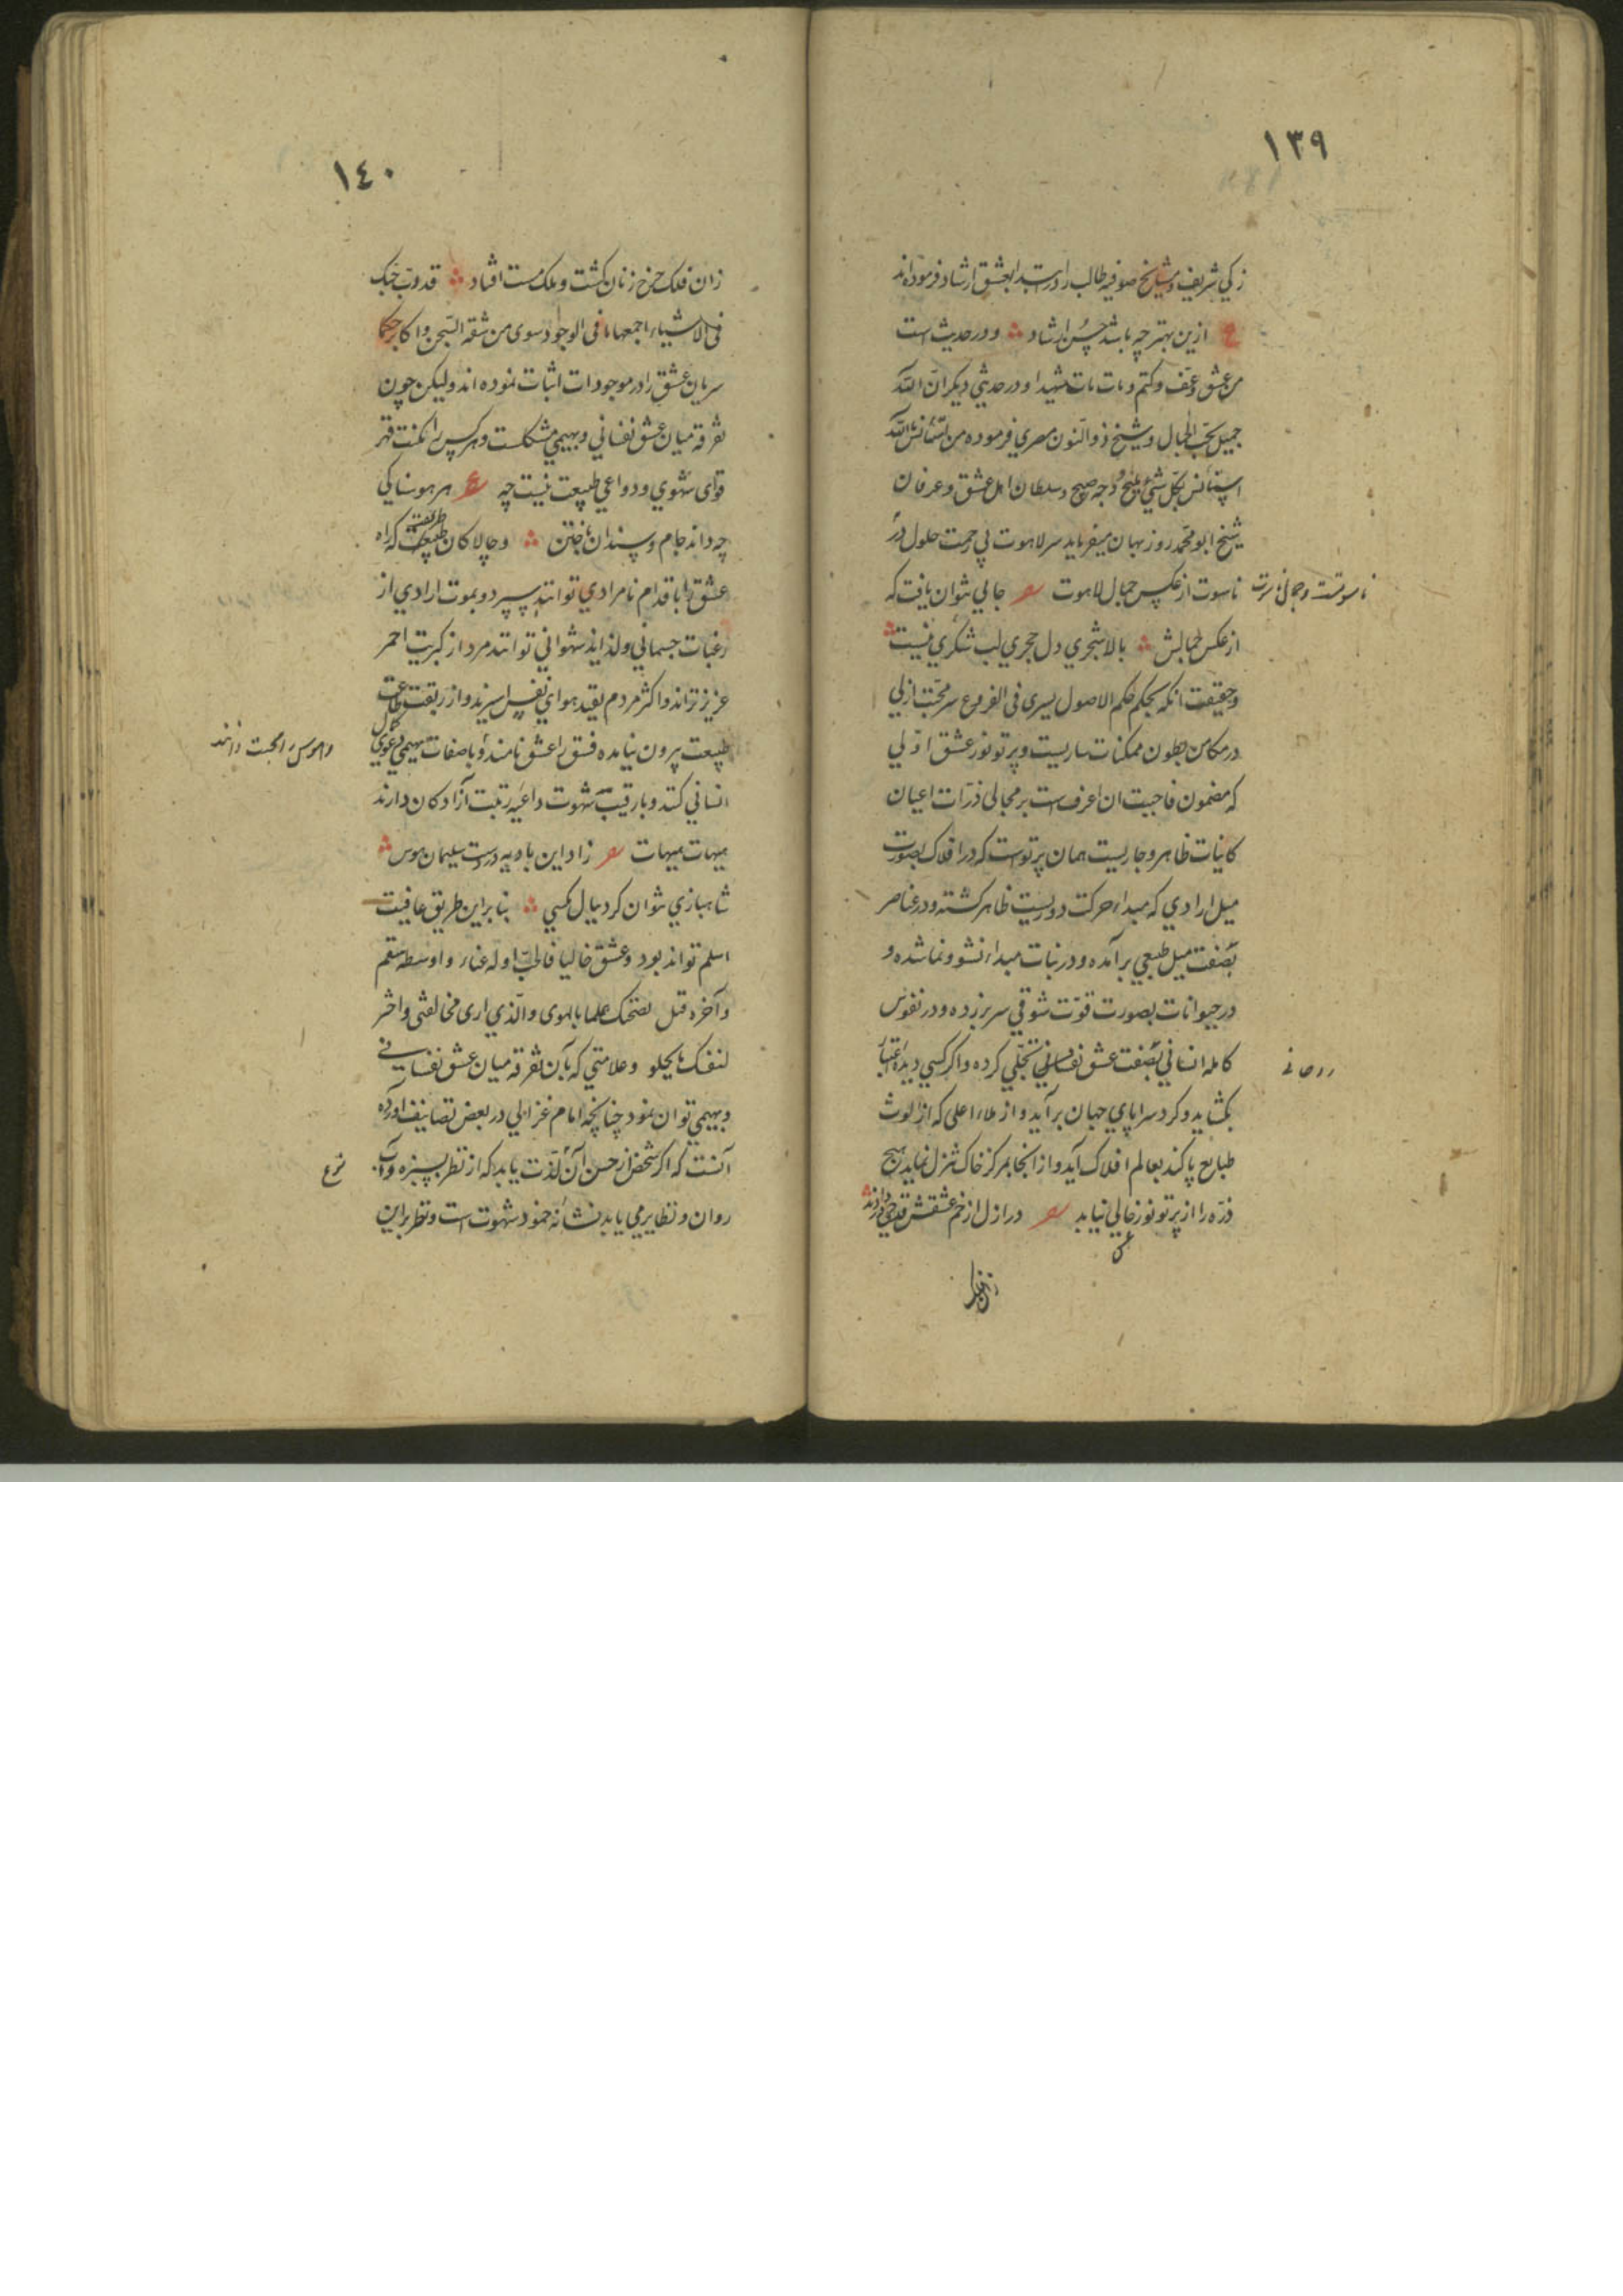 ١٣٩
زكي شريف و مشايخ صوفيه طالب را در ابتدا بعشق ارشاد فرموده اند
ع ازين بهتر چه باشد حسن ارشاد و در حديث است
من عشق و عف و كتم و مات مات شهيدا و در حديثي ديكر ان الله
جميل يحب الجمال و شيخ ذو النون مصري فرموده من استأنس بالله
استأنس بكل شيء مليح و وجه صبيح و سلطان اهل عشق و عرفان
شيخ ابو محمد روزبهان ميفرمايد سر لاهوت بي زحمت حلول در
ناسوتست و جمال ناسوت
ناسوت از عكس جمال لاهوت جايي نتوان يافت كه
از عكس جمالش بالا شجري دل حجري لب شكري نيست
و حقيقت آنكه بحكم حكم الاصول يسري في الفروع سر محبت ازلي
در مكامن بطون ممكنات ساريست و پرتو نور عشق اولي
كه مضمون فاحببت ان اعرف است بر مجالي ذرات اعيان
كاينات ظاهر و جاريست همان پرتو است كه در افلاك بصورت
ميل ارادي كه مبداء حركت دوريست ظاهر كشته و در عناصر
بصفت ميل طبيعي برآمده و در نبات مبداء نشو و نما شده و
در حيوانات بصورت قوت شوقي سر برزده و در نفوس
كامله انساني بصفت عشق نفساني تجلي كرده و اكر كسي ديده اعتبار
روحاني
بكشايد و كرد سراپاي جهان برآيد و از ملاء اعلى كه از لوث
طبايع پاكند بعالم افلاك آيد و از آنجا بمركز خاك تنزل نمايد هيچ
ذره را از پرتو نور خالي نيابد در ازل از خم عشقش قدحي در دادند
١٤٠
زان فلك چرخ زنان كشت و ملك مست افتاد قد دب حبك
في الاشياء اجمعها ما في الوجود سوى من شقه الشجن و اكابر حكما
سريان عشق را در موجودات اثبات نموده اند وليكن چون
تفرقه ميان عشق نفساني و بهيمي مشكلست و هر كس را مكنت قهر
قواى شهوي و دواعي طبيعت نيست چه ع هر هوسناكي
چه داند جام و سندان باختن و چالاكان طريقت كه راه
عشق را باقدام نامرادي توانند سپرد و بموت ارادي از
رغبات جسماني و لذايذ شهواني توانند مرد از كبريت احمر
عزيزتراند و اكثر مردم بقيد هواي نفس اسيرند و از ربقت طاعت
طبيعت بيرون نيامده فسق را عشق نامند و با صفات بهيمي دعوي كمال
و هوس را محبت دانند
انساني كنند و با رقيت شهوت داعيه رتبت آزادكان دارند
هيهات هيهات زاد اين باديه درست سليمان هوس
شاهبازي نتوان كرد ببال مكسي بنابراين طريق عافيت
اسلم تواند بود و عش خاليا فالحب اوله عناء و اوسطه سقم
و آخره قتل نصحتك علما بالهوى و الذي ارى مخالفتي و اختر
لنفسك ما يحلو و علامتي كه بآن تفرقه ميان عشق نفساني
و بهيمي توان نمود چنانچه امام غزالي در بعض تصانيف آورده
آنست كه اكر شخص از حسن آن لذت يابد كه از نظر بسبزه و آب
نوع
روان و نظاير مي يابد نشانه خمود شهوت است و نظر براين